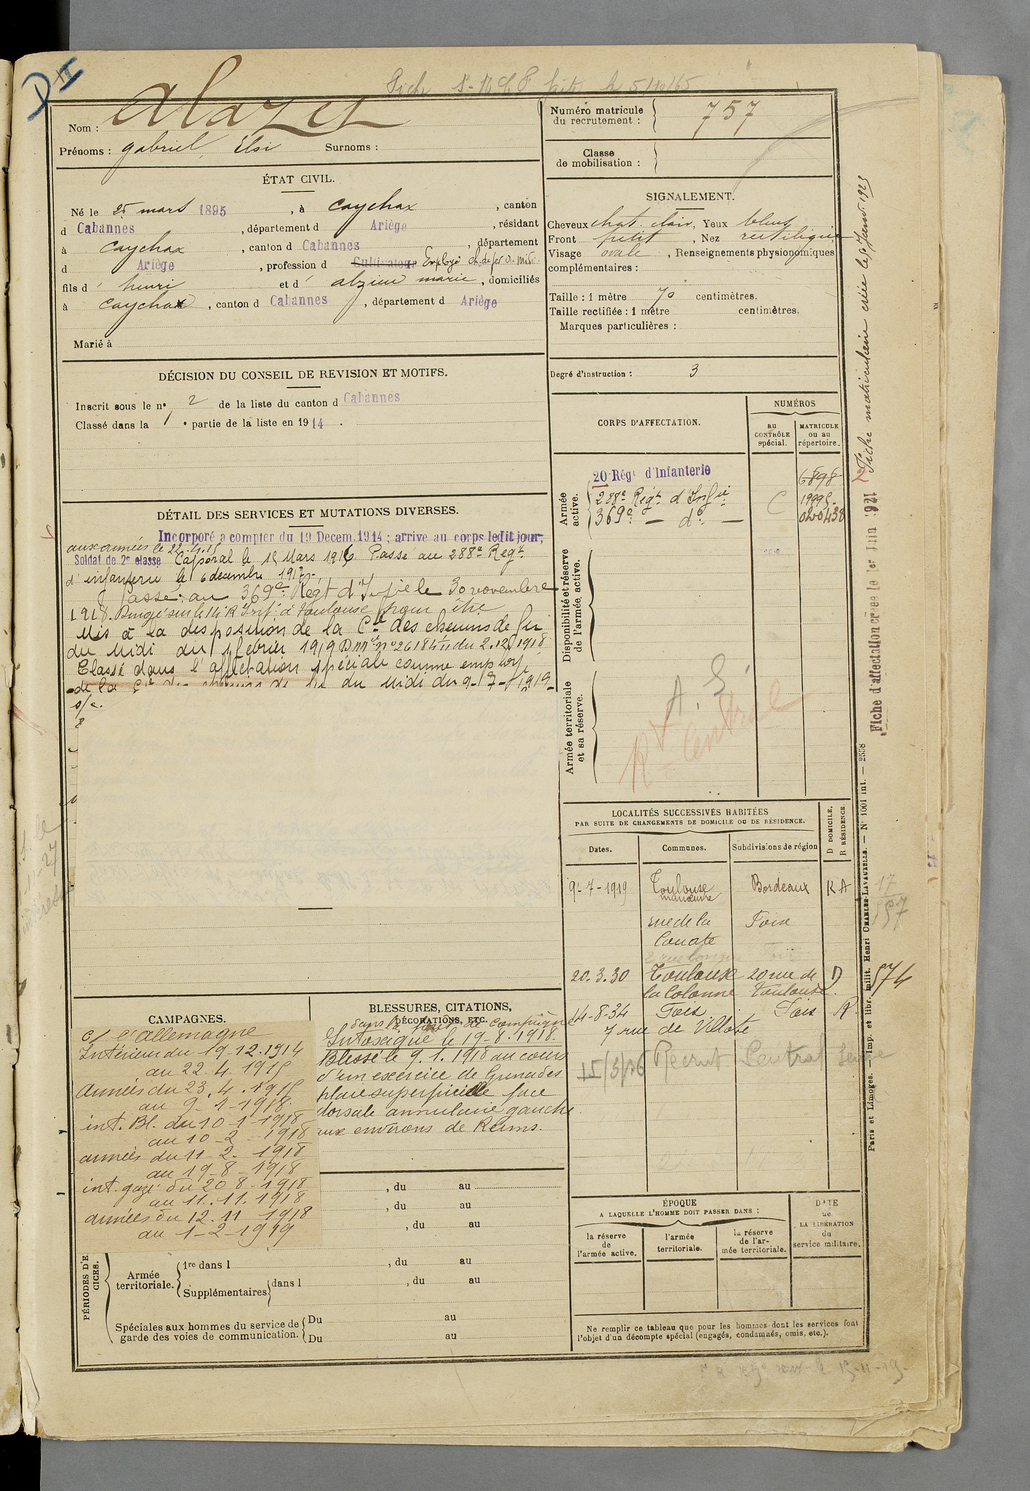 D II
Nom : Alazet
Prénoms : Gabriel Elsi Surnoms :
Numéro matricule du recrutement : 757
Classe de mobilisation :
ÉTAT CIVIL.
Né le 25 mars 1895, à Caychax, canton
d Cabannes, département d Ariège, résidant
à Caychax, canton d Cabannes, département
d Ariège, profession d Cultivateur Employé ch. de fer d. midi
fils d' henri et d' alzieu marie, domiciliés
à Caychax, canton d Cabannes, département d Ariège
Marié à
SIGNALEMENT.
Cheveux chat. clair, Yeux bleus
Front petit, Nez rectiligne
Visage ovale, Renseignements physionomiques
complémentaires :
Taille : 1 mètre 70 centimètres.
Taille rectifiée : 1 mètre centimètres.
Marques particulières :
Degré d'instruction : 3
DÉCISION DU CONSEIL DE REVISION ET MOTIFS.
Inscrit sous le n° 2 de la liste du canton d Cabannes
Classé dans la 1° partie de la liste en 1914.
CORPS D'AFFECTATION.
NUMÉROS
AU CONTRÔLE spécial.
MATRICULE OU AU répertoire.
Armée active.
20 Régt d'Infanterie 6898
288e Régt d'Infie C
369e — do — 020438
Disponibilité et réserve de l'armée active.
Armée territoriale et sa réserve.
A. S.
Rt Central
DÉTAIL DES SERVICES ET MUTATIONS DIVERSES.
Incorporé à compter du 19 Decem. 1914 ; arrive au corps ledit jour,
aux armées le 22.4.15
Soldat de 2e classe Caporal le 12 Mars 1916 Passé au 288e Régt
d'infanterie le 6 décembre 1917.
Passé au 369e Régt d'Infie le 30 novembre
1918. Dirigé sur le 14e R. Inf. à Toulouse pour être
Mis à la disposition de la Cie des chemins de fer
du Midi du 1 février 1919 D.M. n° 26184 du 2.12.1918
Classé dans l'affectation spéciale comme employé
de la Cie des chemins de fer du Midi du 9-7-1919
LOCALITÉS SUCCESSIVES HABITÉES
PAR SUITE DE CHANGEMENTS DE DOMICILE OU DE RÉSIDENCE.
Dates. Communes. Subdivisions de région D DOMICILE. R RÉSIDENCE
9-7-1919 Toulouse Bordeaux R A
manœuvre
rue de la Foix
20.3.30 Toulouse 20 rue de D
la Colonne Toulouse.
14-8-34 Foix Foix R
7 rue de Villote
15/3/36 Recrut Central Seine
574
17
157
CAMPAGNES.
C/ l'allemagne
Intérieur du 19.12.1914
au 22.4.1915
Armées du 23.4.1915
au 9-1-1918
int. Bl. du 10-1-1918
au 10-2-1918
armées du 11-2-1918
au 19-8-1918
int. gazé du 20-8-1918
au 11.11.1918
armées du 12.11.1918
au 1-2-1919
BLESSURES, CITATIONS, DÉCORATIONS, ETC.
Intoxiqué le 19-8-1918.
Blessé le 9.1.1918 au cours
d'un exercice de Grenades
plaie superficielle face
dorsale annulaire gauche
aux environs de Reims.
, du au
, du au
, du au
, du au
, du au
PÉRIODES D'EXERCICES.
Armée territoriale. 1re dans l
Supplémentaires dans l
Spéciales aux hommes du service de garde des voies de communication. Du au
Du au
ÉPOQUE
A LAQUELLE L'HOMME DOIT PASSER DANS :
la réserve de l'armée active.
l'armée territoriale.
la réserve de l'armée territoriale.
DATE de LA LIBÉRATION du service militaire.
Ne remplir ce tableau que pour les hommes dont les services font
l'objet d'un décompte spécial (engagés, condamnés, omis, etc.).
Fiche matriculaire créée le 9 Janv. 1923
Fiche d'affectation créée le 1er Juin 1921
Paris et Limoges. — Imp. et libr. milit. Henri CHARLES-LAVAUZELLE. — N° 1001 int. — 2558